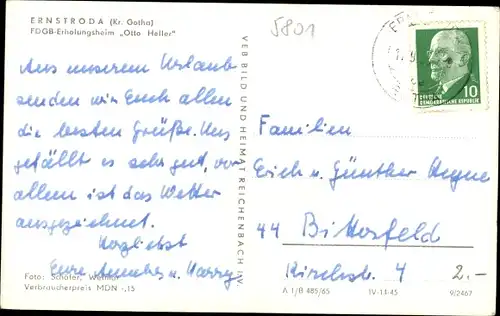 ERNSTRODA (Kr. Gotha)
FDGB-Erholungsheim „Otto Heller"
5801
Aus unserem Urlaub
senden wir Euch allen
die besten Grüße. Uns
gefällt es sehr gut, vor
allem ist das Wetter
ausgezeichnet.
Herzlichst
Eure u. Harry
Foto: Schäfer, Weimar
Verbraucherpreis MDN -,15
VEB BILD UND HEIMAT REICHENBACH i. V.
10
DEUTSCHE
DEMOKRATISCHE REPUBLIK
Familien
Erich u. Günther
44 Bitterfeld
Kirchstr. 4
2.-
A 1/B 485/65 IV-14-45 9/2467